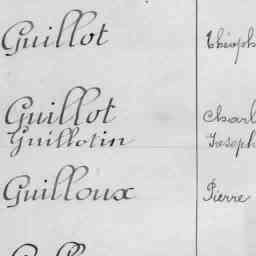 Guillot Théoph
Guillot Charl
Guillotin Joseph
Guilloux Pierre